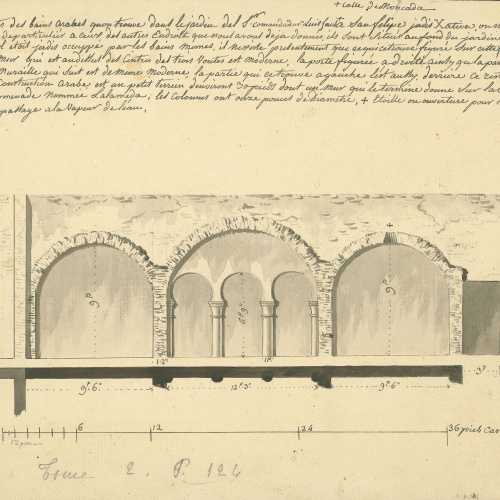 + Calle de Moncada
des bains arabes qu'on trouve dans le jardin del Sr comandador Luis Sante San felipe jadis Xativa, ou
de particulier a ceux des autres Endroits que nous avons deja donnés, ils sont situés au fond du jardin
etoit jadis occupée par les bains memes, il ne reste presentement que ce qui est en figure sur cette
mur qui est au dessus des Cintres des trois voutes est moderne, la porte figurée a droite ainsy que la par
Muraille qui suit est de meme moderne la partie qui se trouve a gauche l'est aussy, derriere ce
Construction arabe est un petit terrein d'environ 30 pieds dont un mur qui le termine donne sur la
promenade nommée l'alameda; les Colonnes ont onze pouces de diametre, + Etoille ou ouverture pour
passage a la vapeur de l'eau.
+
9 P.
6 P. 9°
9 P.
1. 2°
1 P.
9 P. 6°
12 P. 3°
9 P. 6°
3 P.
6 12 24 36 pieds
12 pou
Tome 2. P. 124